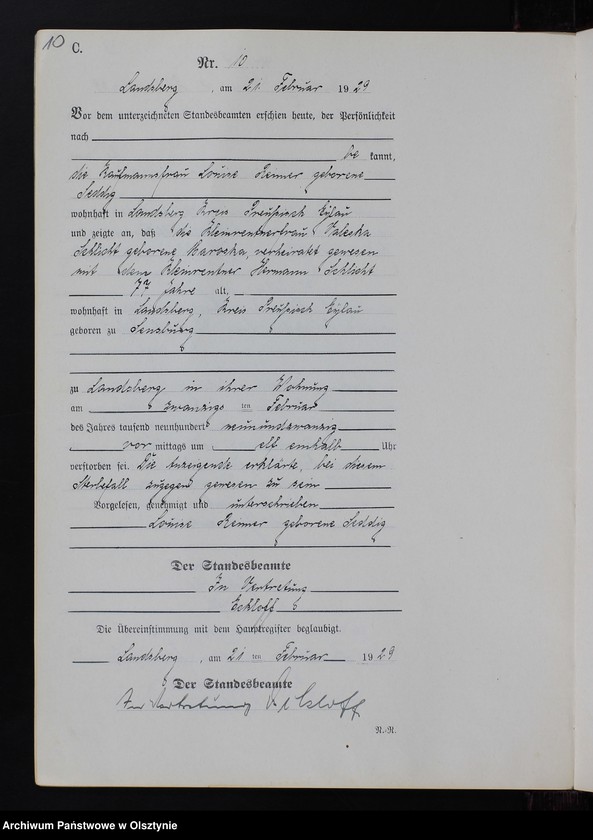 10
C.
Nr. 10
Landsberg, am 21. Februar 1929
Vor dem unterzeichneten Standesbeamten erschien heute, der Persönlichkeit
nach
be kannt,
die Kaufmannsfrau Louise Renner geborene
Seddig
wohnhaft in Landsberg Kreis Preußisch Eylau
und zeigte an, daß die Kleinrentnerfrau Valeska
Schlicht geborene Baroska, verheiratet gewesen
mit dem Kleinrentner Hermann Schlicht
77 Jahre alt,
wohnhaft in Landsberg, Kreis Preußisch Eylau
geboren zu Sensburg
zu Landsberg in ihrer Wohnung
am zwanzigsten Februar
des Jahres tausend neunhundert neunundzwanzig
vor mittags um elf einhalb Uhr
verstorben sei. Die Anzeigende erklärte, bei diesem
Sterbefall zugegen gewesen zu sein
Vorgelesen, genehmigt und unterschrieben
Louise Renner geborene Seddig
Der Standesbeamte
In Vertretung
Eckloff
Die Übereinstimmung mit dem Hauptregister beglaubigt.
Landsberg, am 21ten Februar 1929
Der Standesbeamte
In Vertretung Eckloff
R.-R.
Archiwum Państwowe w Olsztynie